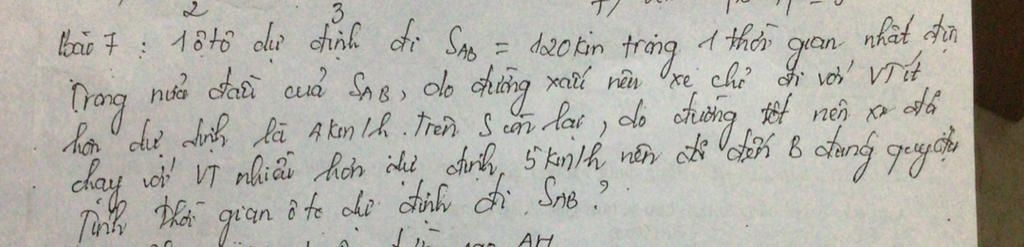 2 3
bài 7 : 1 ôtô dự định đi SAB = 120km trong 1 thời gian nhất định
Trong nửa đầu của SAB, do đường xấu nên xe chỉ đi với VT ít
hơn dự định là 4km/h. Trên S còn lại, do đường tốt nên xe đã
chạy với VT nhiều hơn dự định 5km/h nên đã đến B đúng quy định
Tính thời gian ô tô dự định đi SAB?
AH